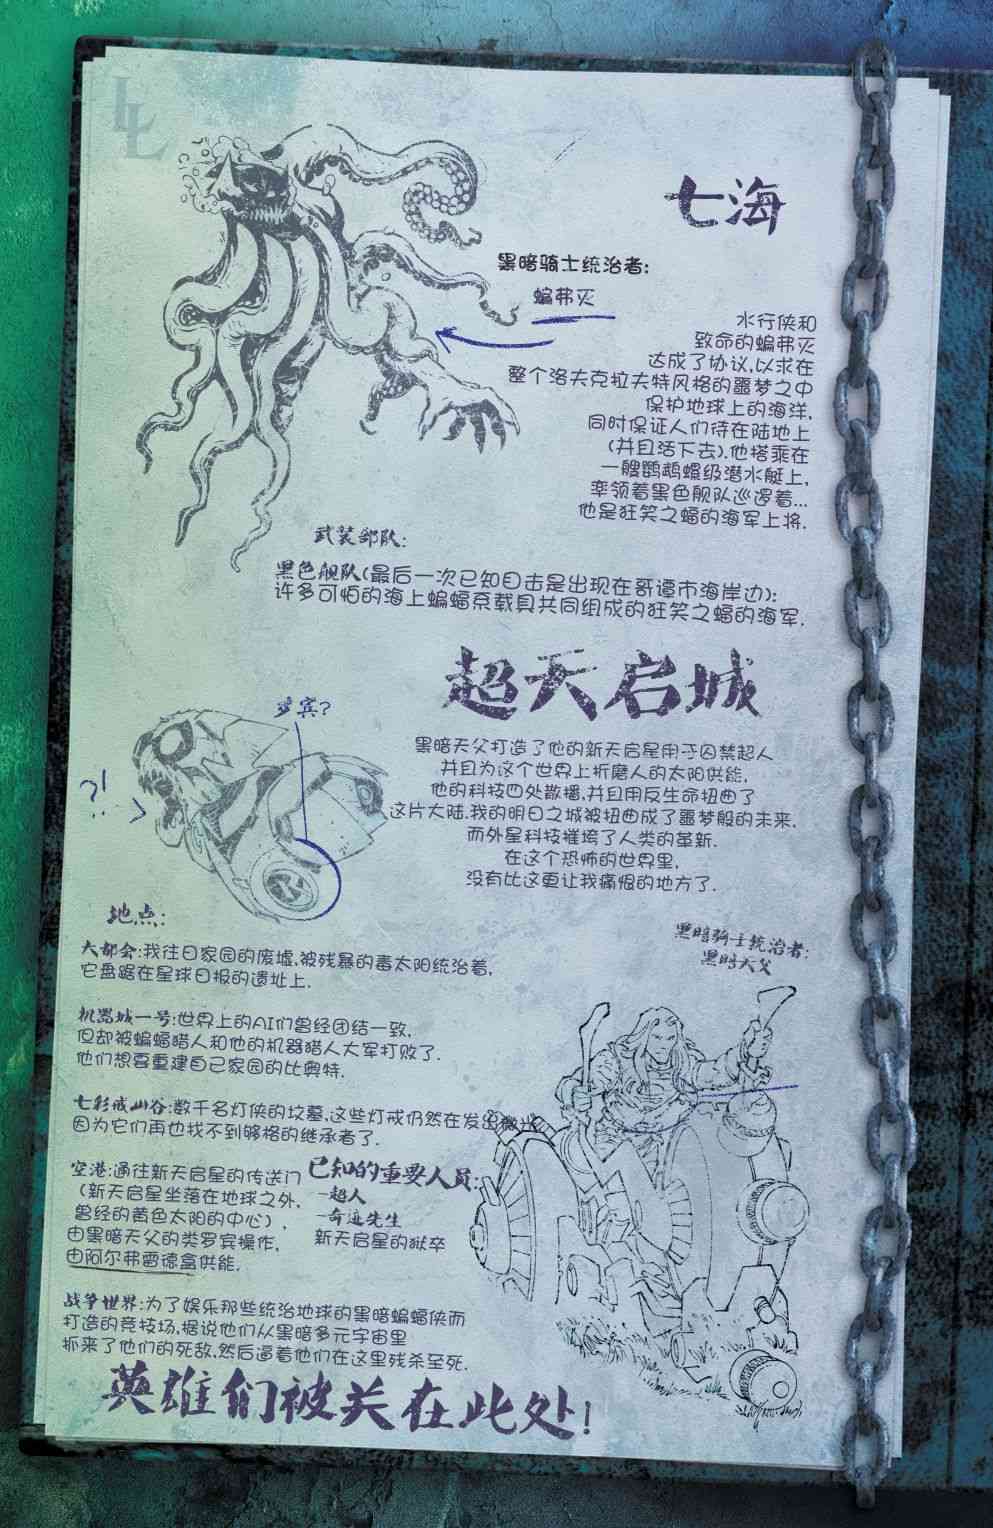 LL
七海
黑暗骑士统治者:
蝙弗灭
水行侠和
致命的蝙弗灭
达成了协议,以求在
整个洛夫克拉夫特风格的噩梦之中
保护地球上的海洋,
同时保证人们待在陆地上
(并且活下去).他搭乘在
一艘鹦鹉螺级潜水艇上,
率领着黑色舰队巡逻着...
他是狂笑之蝠的海军上将.
武装部队:
黑色舰队(最后一次已知目击是出现在哥谭市海岸边):
许多可怕的海上蝙蝠系载具共同组成的狂笑之蝠的海军.
超天启城
罗宾?
?!
黑暗天父打造了他的新天启星用于囚禁超人
并且为这个世界上折磨人的太阳供能,
他的科技四处散播,并且用反生命扭曲了
这片大陆.我的明日之城被扭曲成了噩梦般的未来,
而外星科技摧垮了人类的革新.
在这个恐怖的世界里,
没有比这更让我痛恨的地方了.
地点:
大都会:我往日家园的废墟,被残暴的毒太阳统治着,
它盘踞在星球日报的遗址上.
黑暗骑士统治者:
黑暗天父
机器城一号:世界上的AI们曾经团结一致,
但却被蝙蝠猎人和他的机器猎人大军打败了.
他们想要重建自己家园的比奥特.
七彩戒山谷:数千名灯侠的坟墓,这些灯戒仍然在发出微光
因为它们再也找不到够格的继承者了.
空港:通往新天启星的传送门
(新天启星坐落在地球之外,
曾经的黄色太阳的中心),
由黑暗天父的类罗宾操作,
由阿尔弗雷德盒供能.
已知的重要人员:
-超人
-奇迹先生
新天启星的狱卒
战争世界:为了娱乐那些统治地球的黑暗蝙蝠侠而
打造的竞技场,据说他们从黑暗多元宇宙里
抓来了他们的死敌,然后逼着他们在这里残杀至死.
英雄们被关在此处!